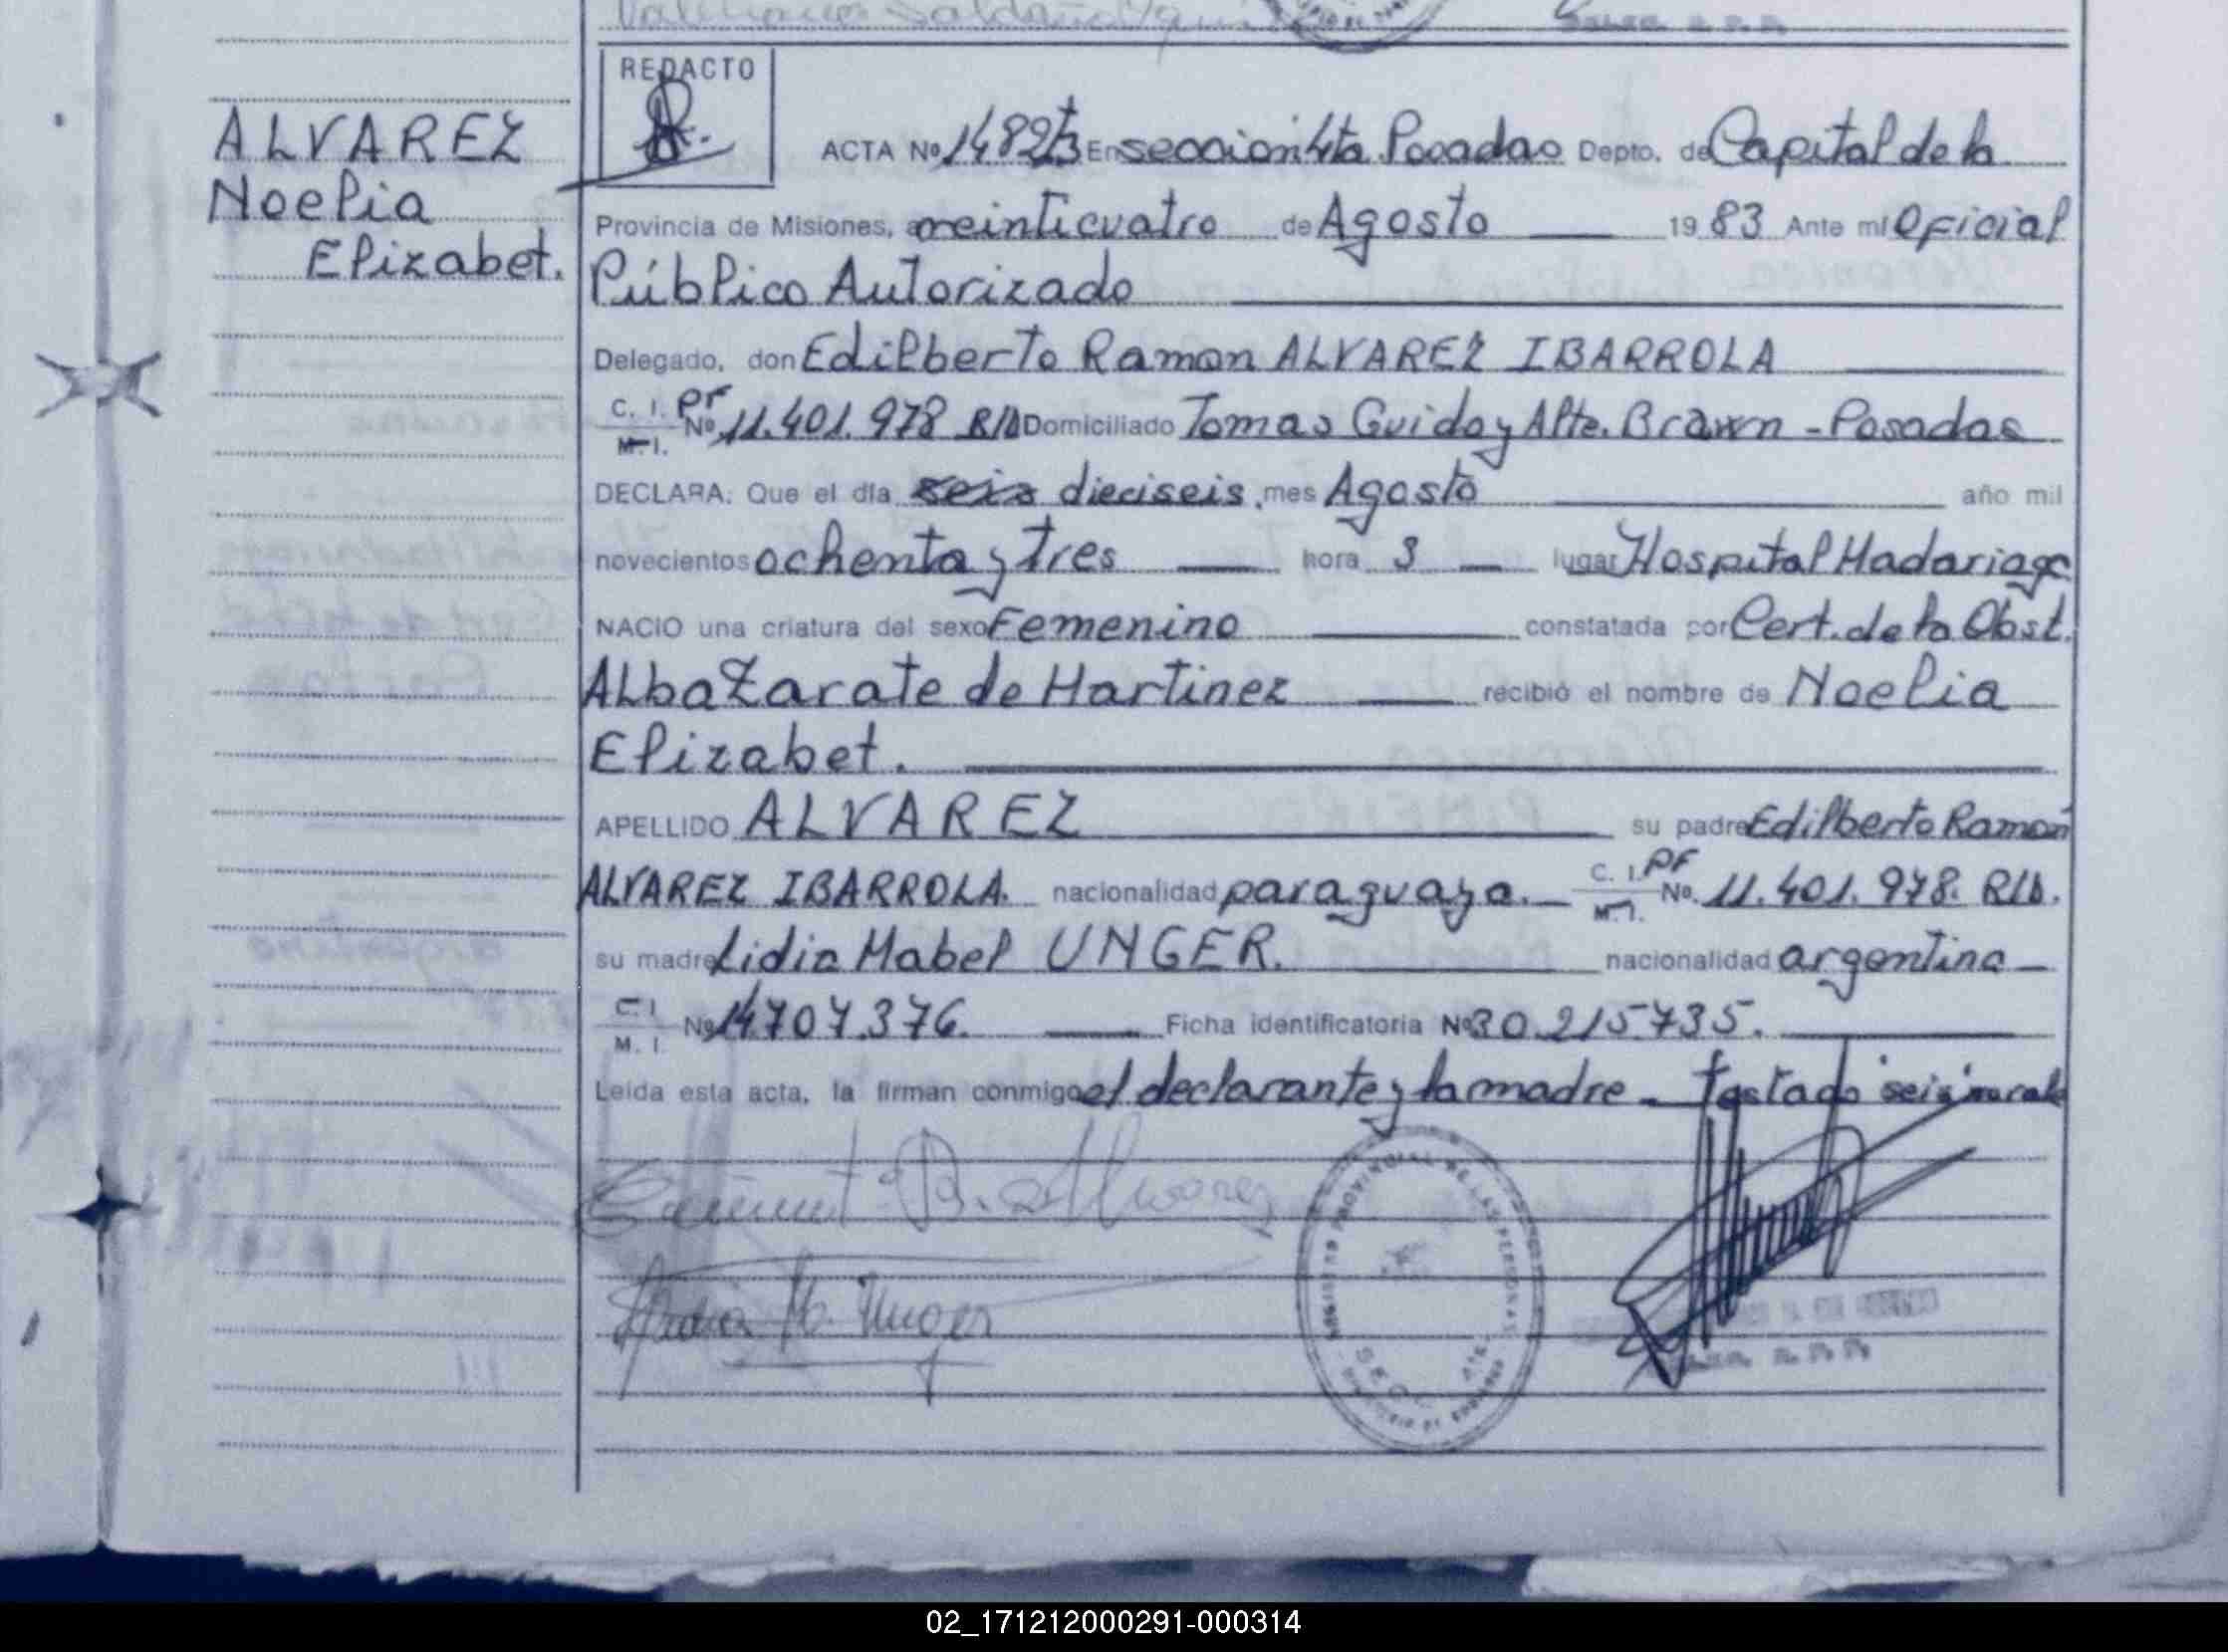 REDACTO
ALVAREZ
Noelia
Elizabet.
ACTA Nº 1482 En seccion 4ta Posadas Depto. de Capital de la
Provincia de Misiones, a veinticuatro de Agosto 19 83 Ante mí Oficial
Público Autorizado
Delegado, don Edilberto Ramon ALVAREZ IBARROLA
C. I. PF
M. I. Nº 11.401.978 RID Domiciliado Tomas Guido y Alte. Brawn - Posadas
DECLARA: Que el día seis dieciseis mes Agosto año mil
novecientos ochenta y tres hora 3 lugar Hospital Madariaga
NACIO una criatura del sexo Femenino constatada por Cert. de la Obst.
Alba Zarate de Martinez recibió el nombre de Noelia
Elizabet.
APELLIDO ALVAREZ su padre Edilberto Ramon
ALVAREZ IBARROLA. nacionalidad paraguaya. C. I. PF M. I. Nº 11.401.978. RID.
su madre Lidia Mabel UNGER. nacionalidad argentina
C. I. M. I. Nº 14.707.376. Ficha identificatoria Nº 30.215.735.
Leída esta acta, la firman conmigo el declarante y la madre - testado "seis" no vale
Alvarez
Lidia M. Unger
PROVINCIAL DE LAS PERSONAS
02_171212000291-000314